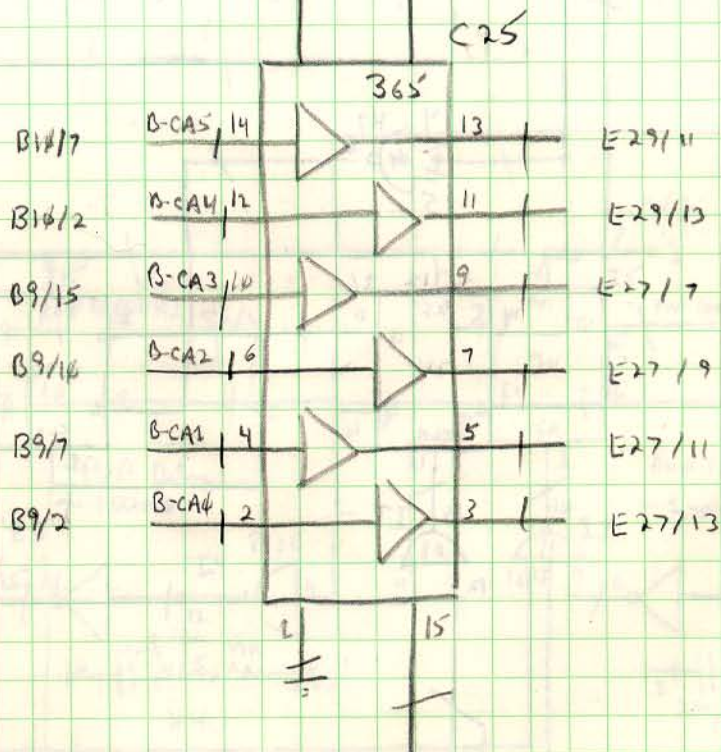 C25
365
B10/7 B-CA5 14 13 E29/11
B10/2 B-CA4 12 11 E29/13
B9/15 B-CA3 10 9 E27/7
B9/10 B-CA2 6 7 E27/9
B9/7 B-CA1 4 5 E27/11
B9/2 B-CA0 2 3 E27/13
1 15